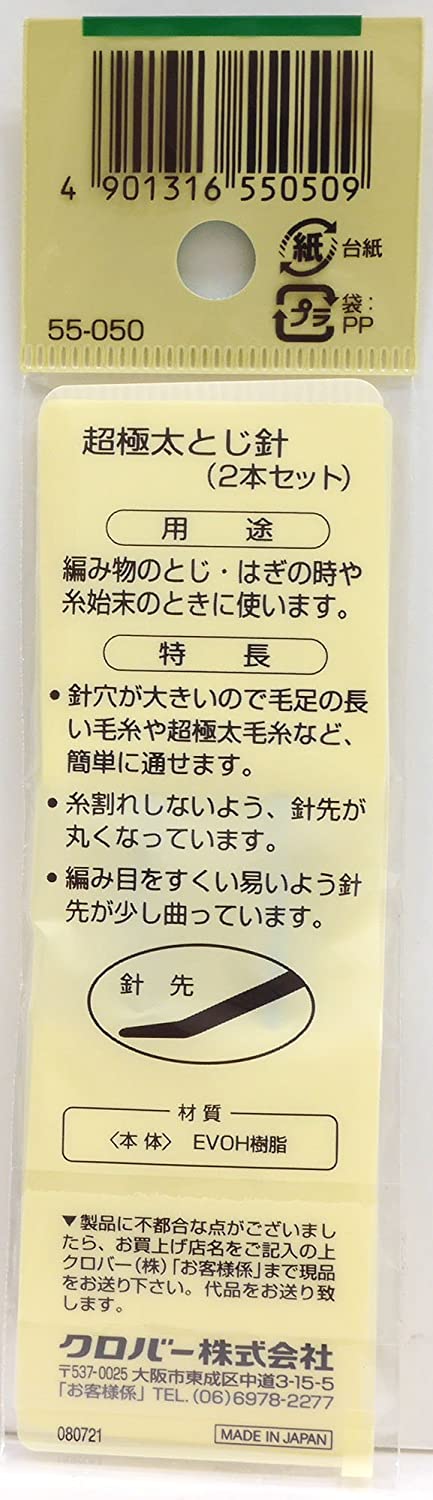 4 901316 550509
紙 台紙
プラ 袋:
PP
55-050
超極太とじ針
(2本セット)
用 途
編み物のとじ・はぎの時や
糸始末のときに使います。
特 長
• 針穴が大きいので毛足の長
い毛糸や超極太毛糸など、
簡単に通せます。
• 糸割れしないよう、針先が
丸くなっています。
• 編み目をすくい易いよう針
先が少し曲っています。
針 先
材 質
〈本 体〉 EVOH樹脂
▼製品に不都合な点がございまし
たら、お買上げ店名をご記入の上
クロバー(株)「お客様係」まで現品
をお送り下さい。代品をお送り致
します。
クロバー株式会社
〒537-0025 大阪市東成区中道3-15-5
「お客様係」TEL.(06)6978-2277
080721
MADE IN JAPAN